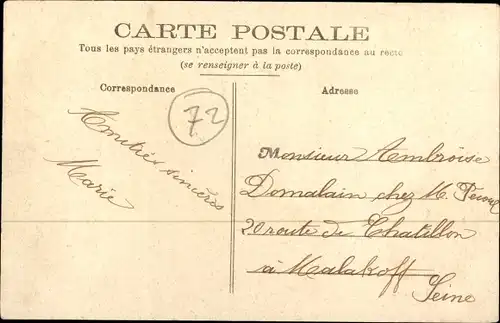 CARTE POSTALE
Tous les pays étrangers n'acceptent pas la correspondance au recto
(se renseigner à la poste)
Correspondance
Adresse
72
Amitiés sincères
Marie
Monsieur Ambroise
Domalain chez M.
20 route de Chatillon
à Malakoff
Seine